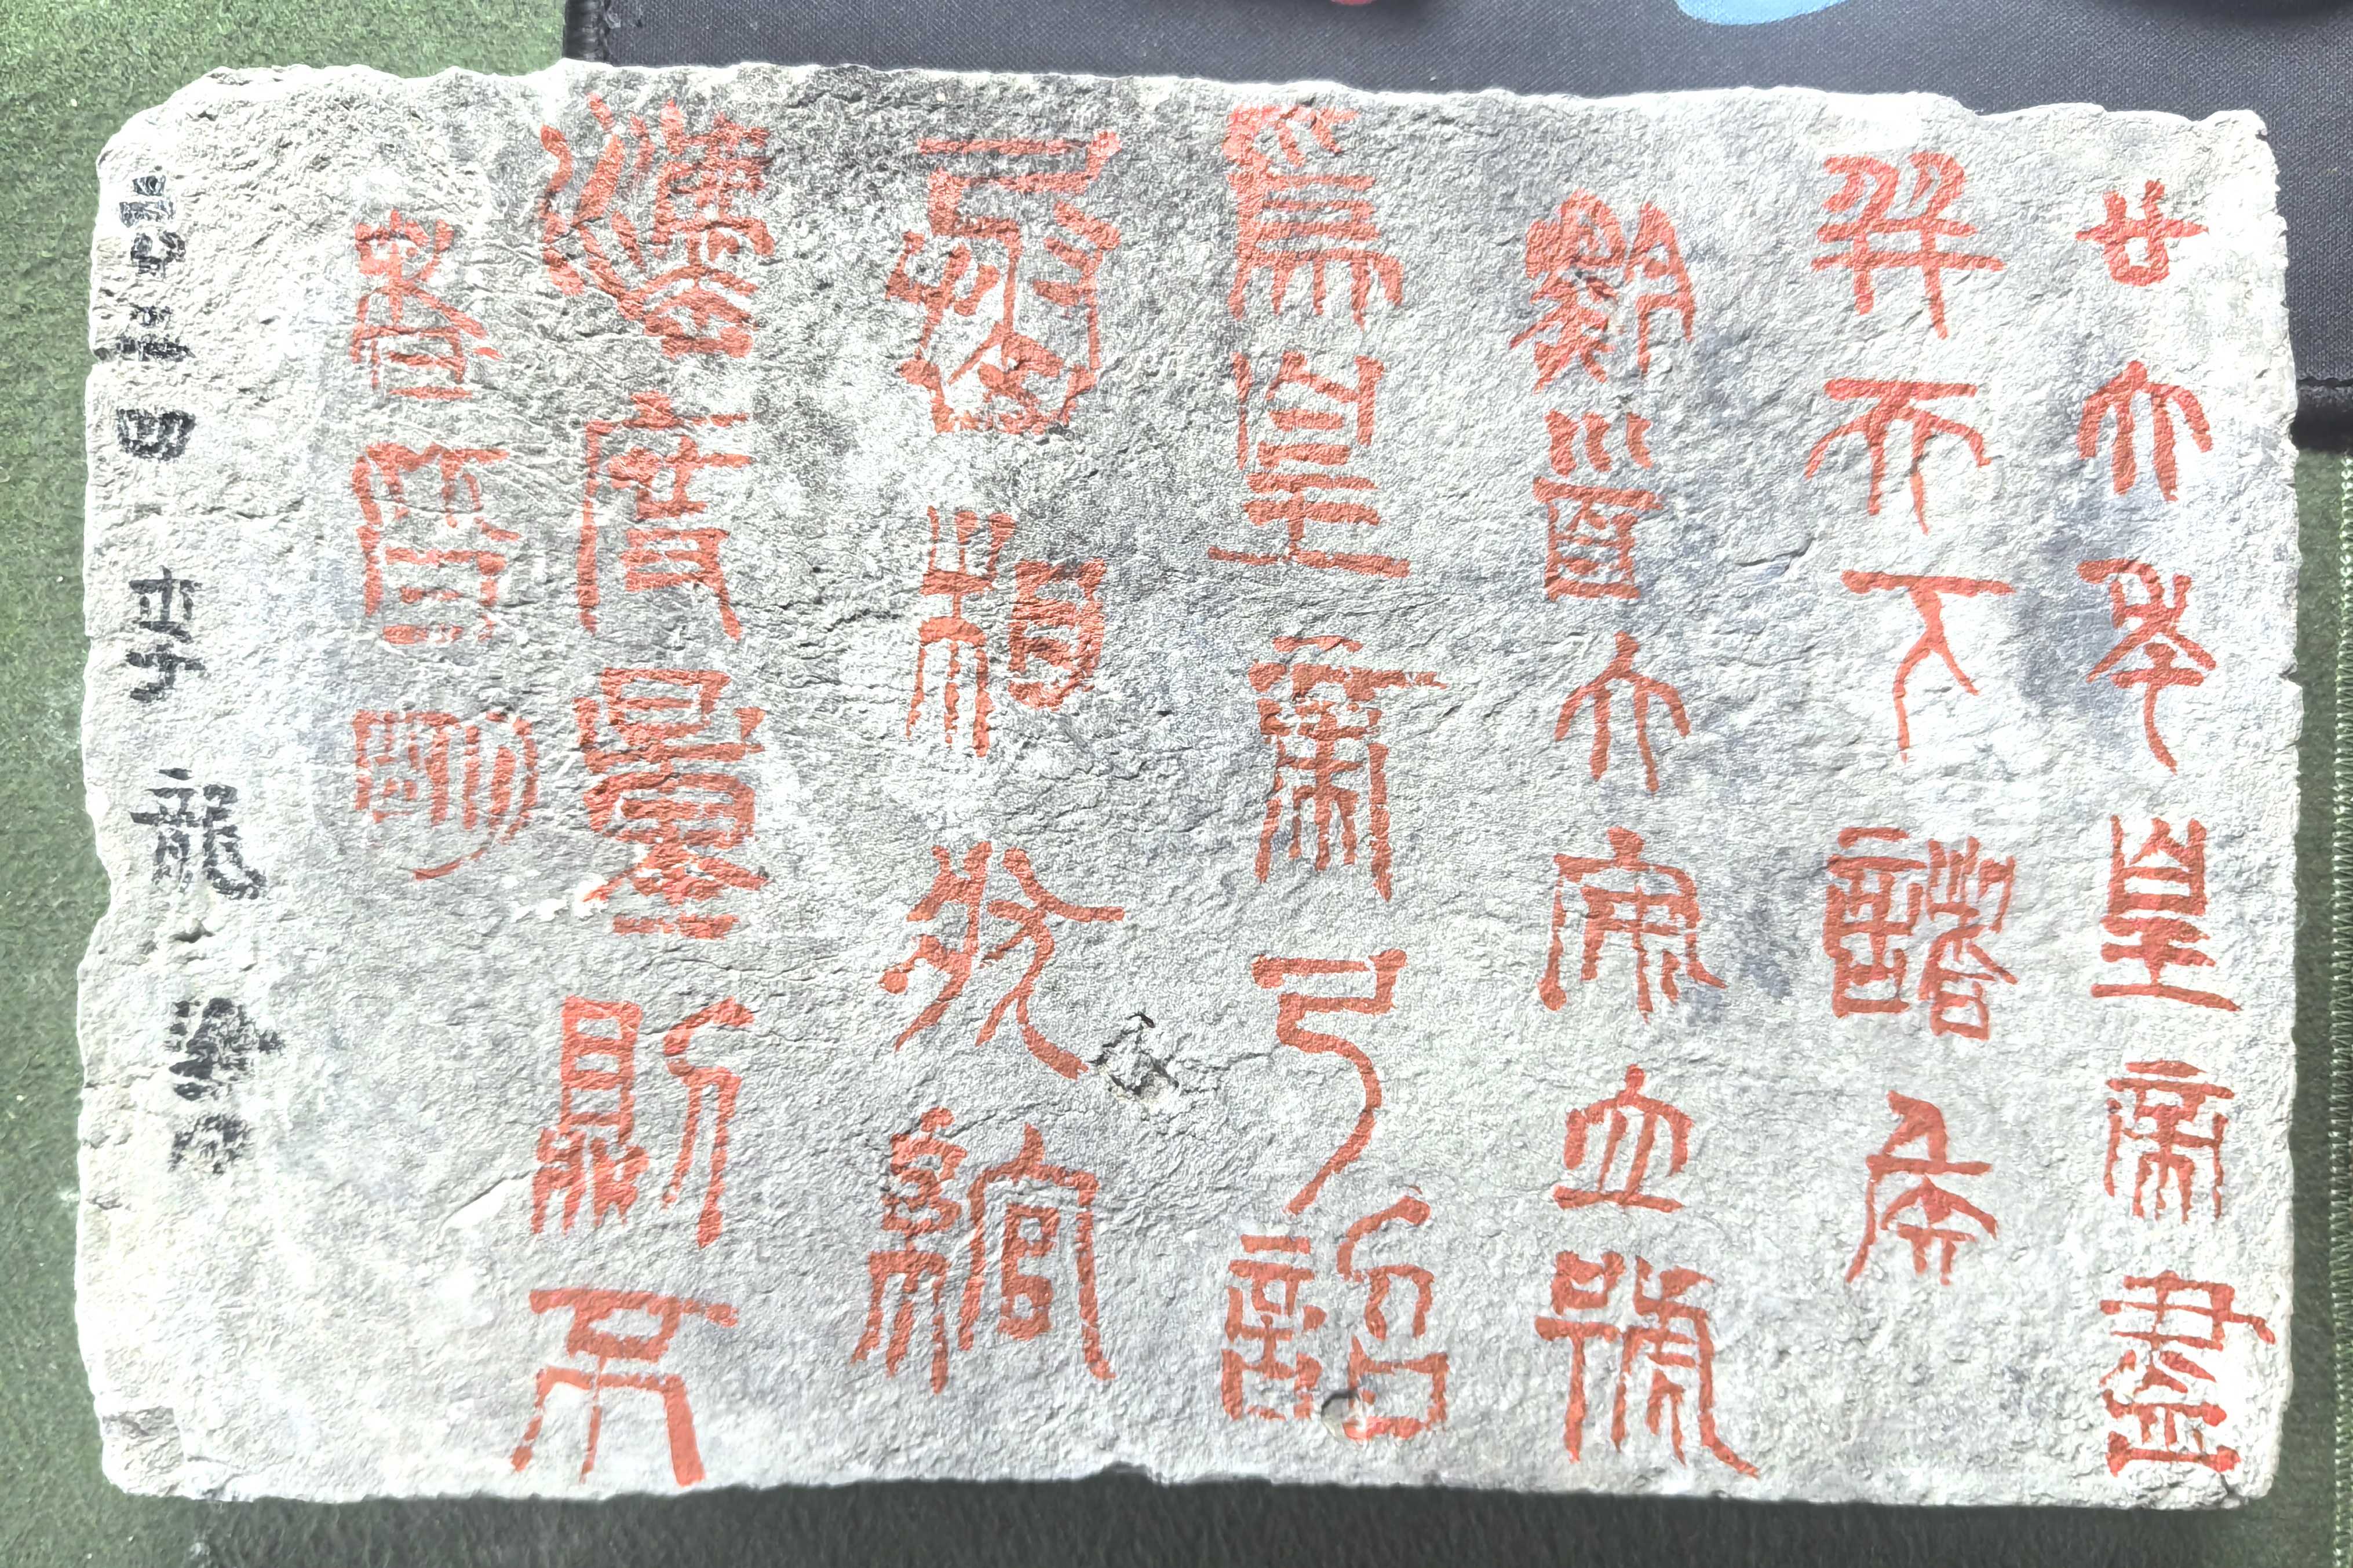 廿六年皇帝盡
并天下諸侯
黔首大安立號
爲皇帝乃詔
丞相狀綰
灋度量則不
者皆明
龍